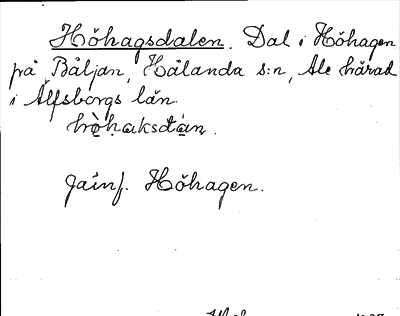 Höhagsdalen. Dal i Höhagen
på Båljan, Hålanda s:n, Ale härad
i Älfsborgs län.
Jämf. Höhagen.